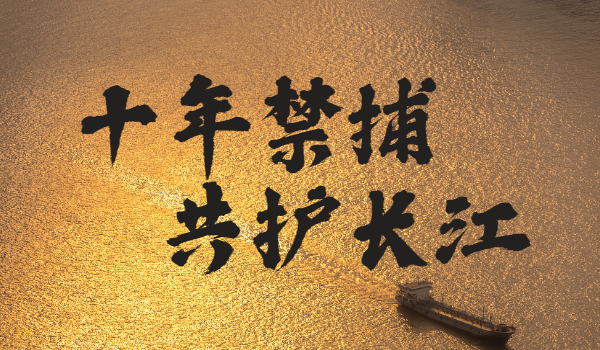 十年禁捕
共护长江